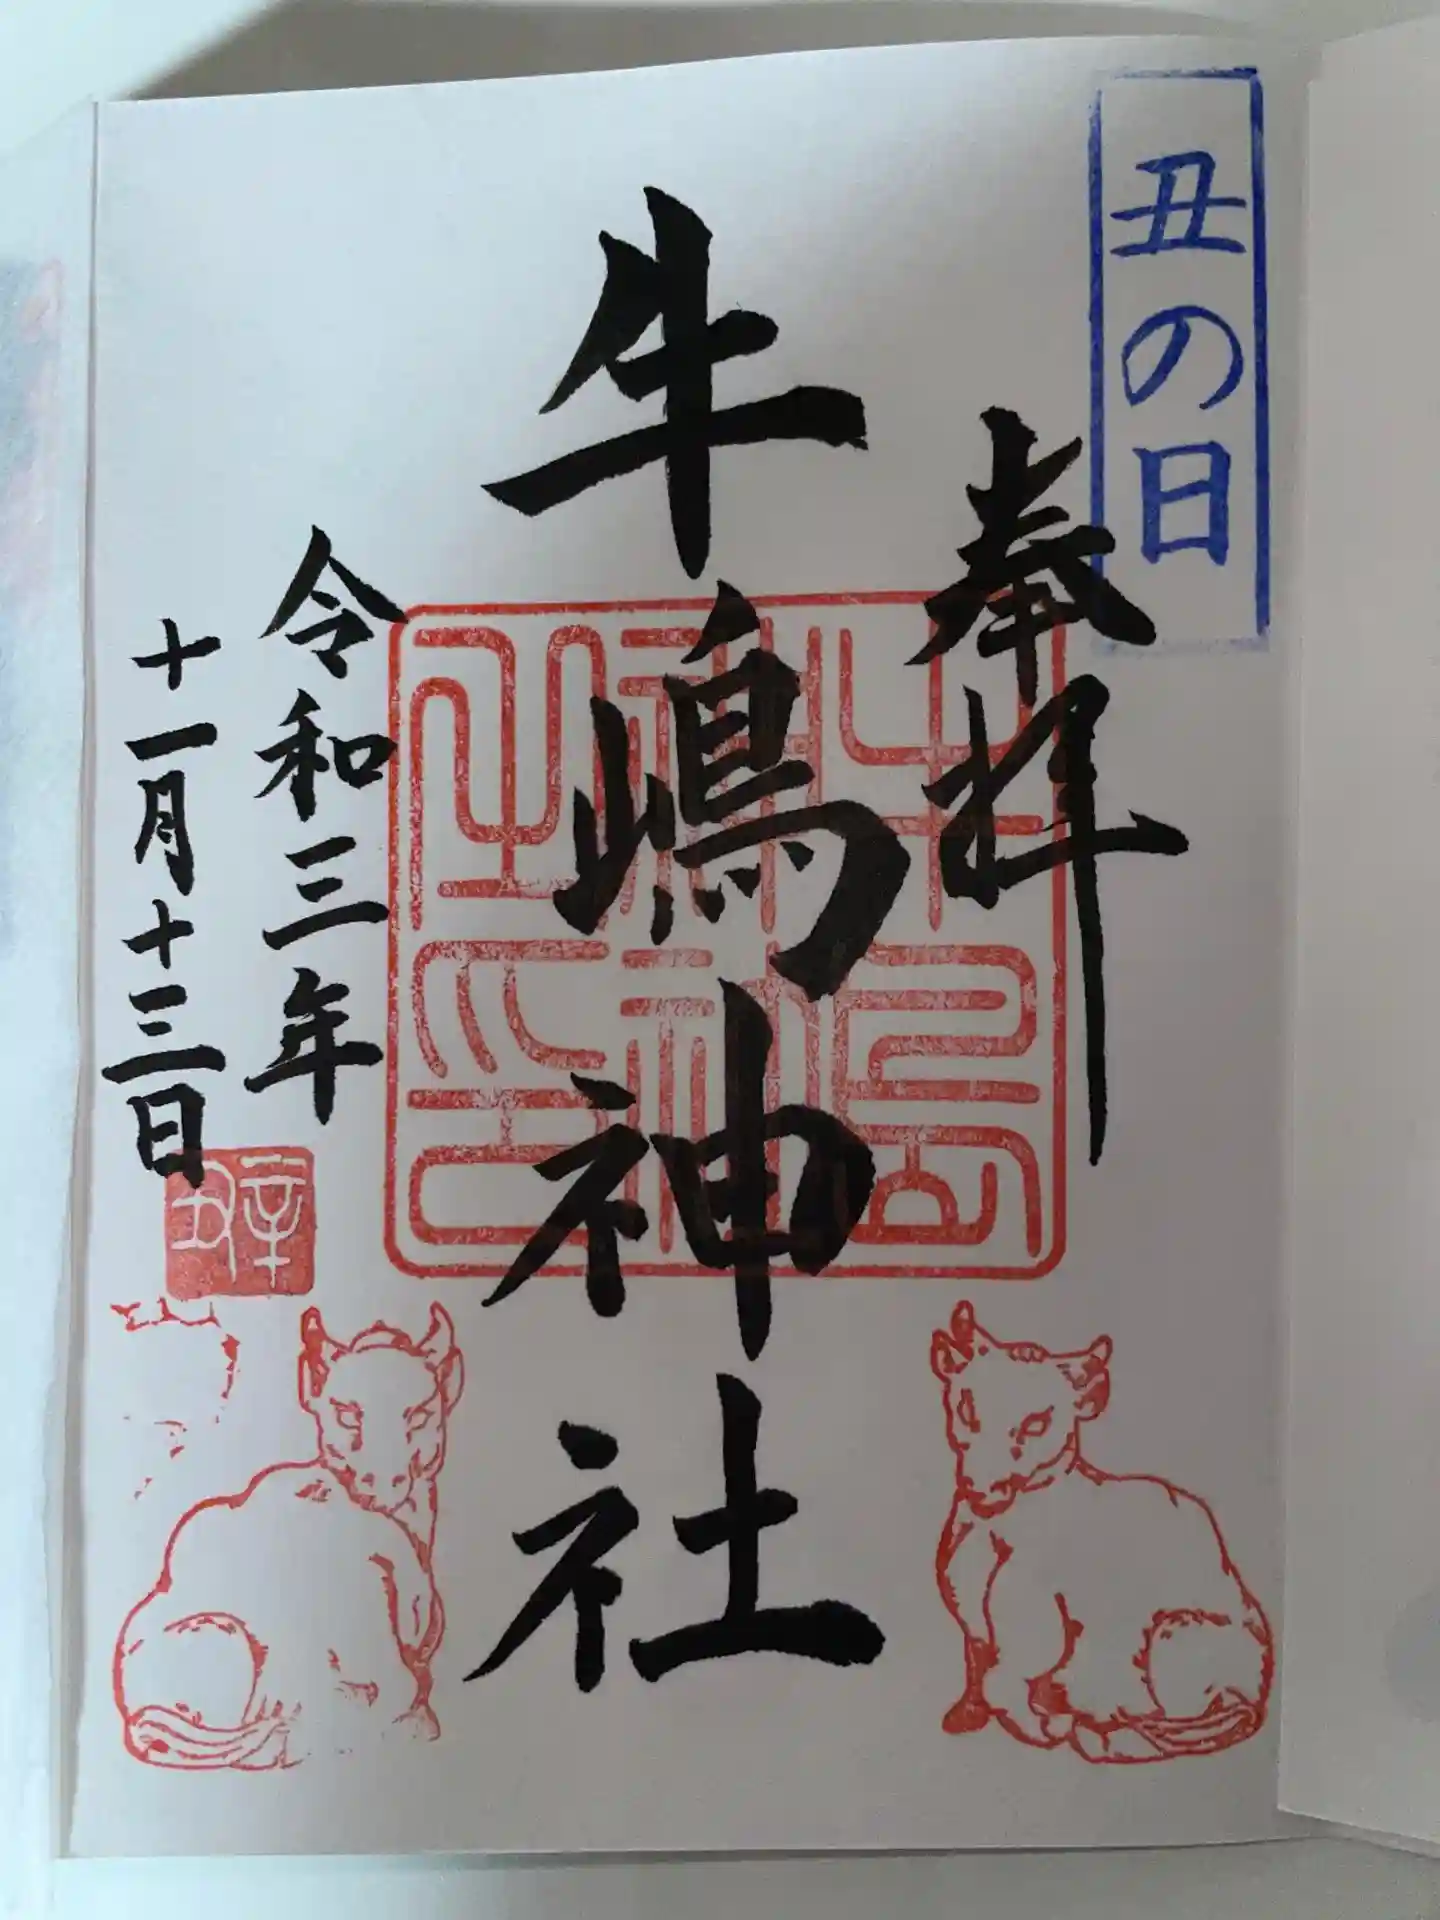 丑の日
奉拝
牛嶋神社
令和三年
十一月十三日
辛丑